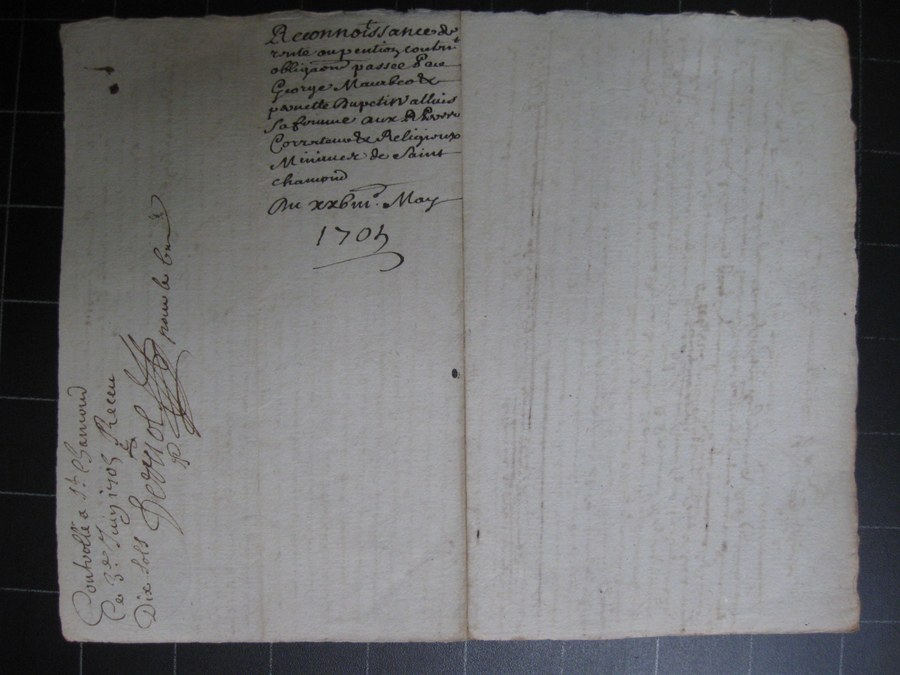 Reconnoissance de
rente ou pention contnt
obligaon passee par
George
pernette Dupetit Vallies
Sa femme aux RR
Correcteur & Religieux
Minimes de Saint
chamond
Du xxbiii. May
1705
Controllé a St. Chamond
Ce 3e Juin 1705 Receu
Dix sols
pour le